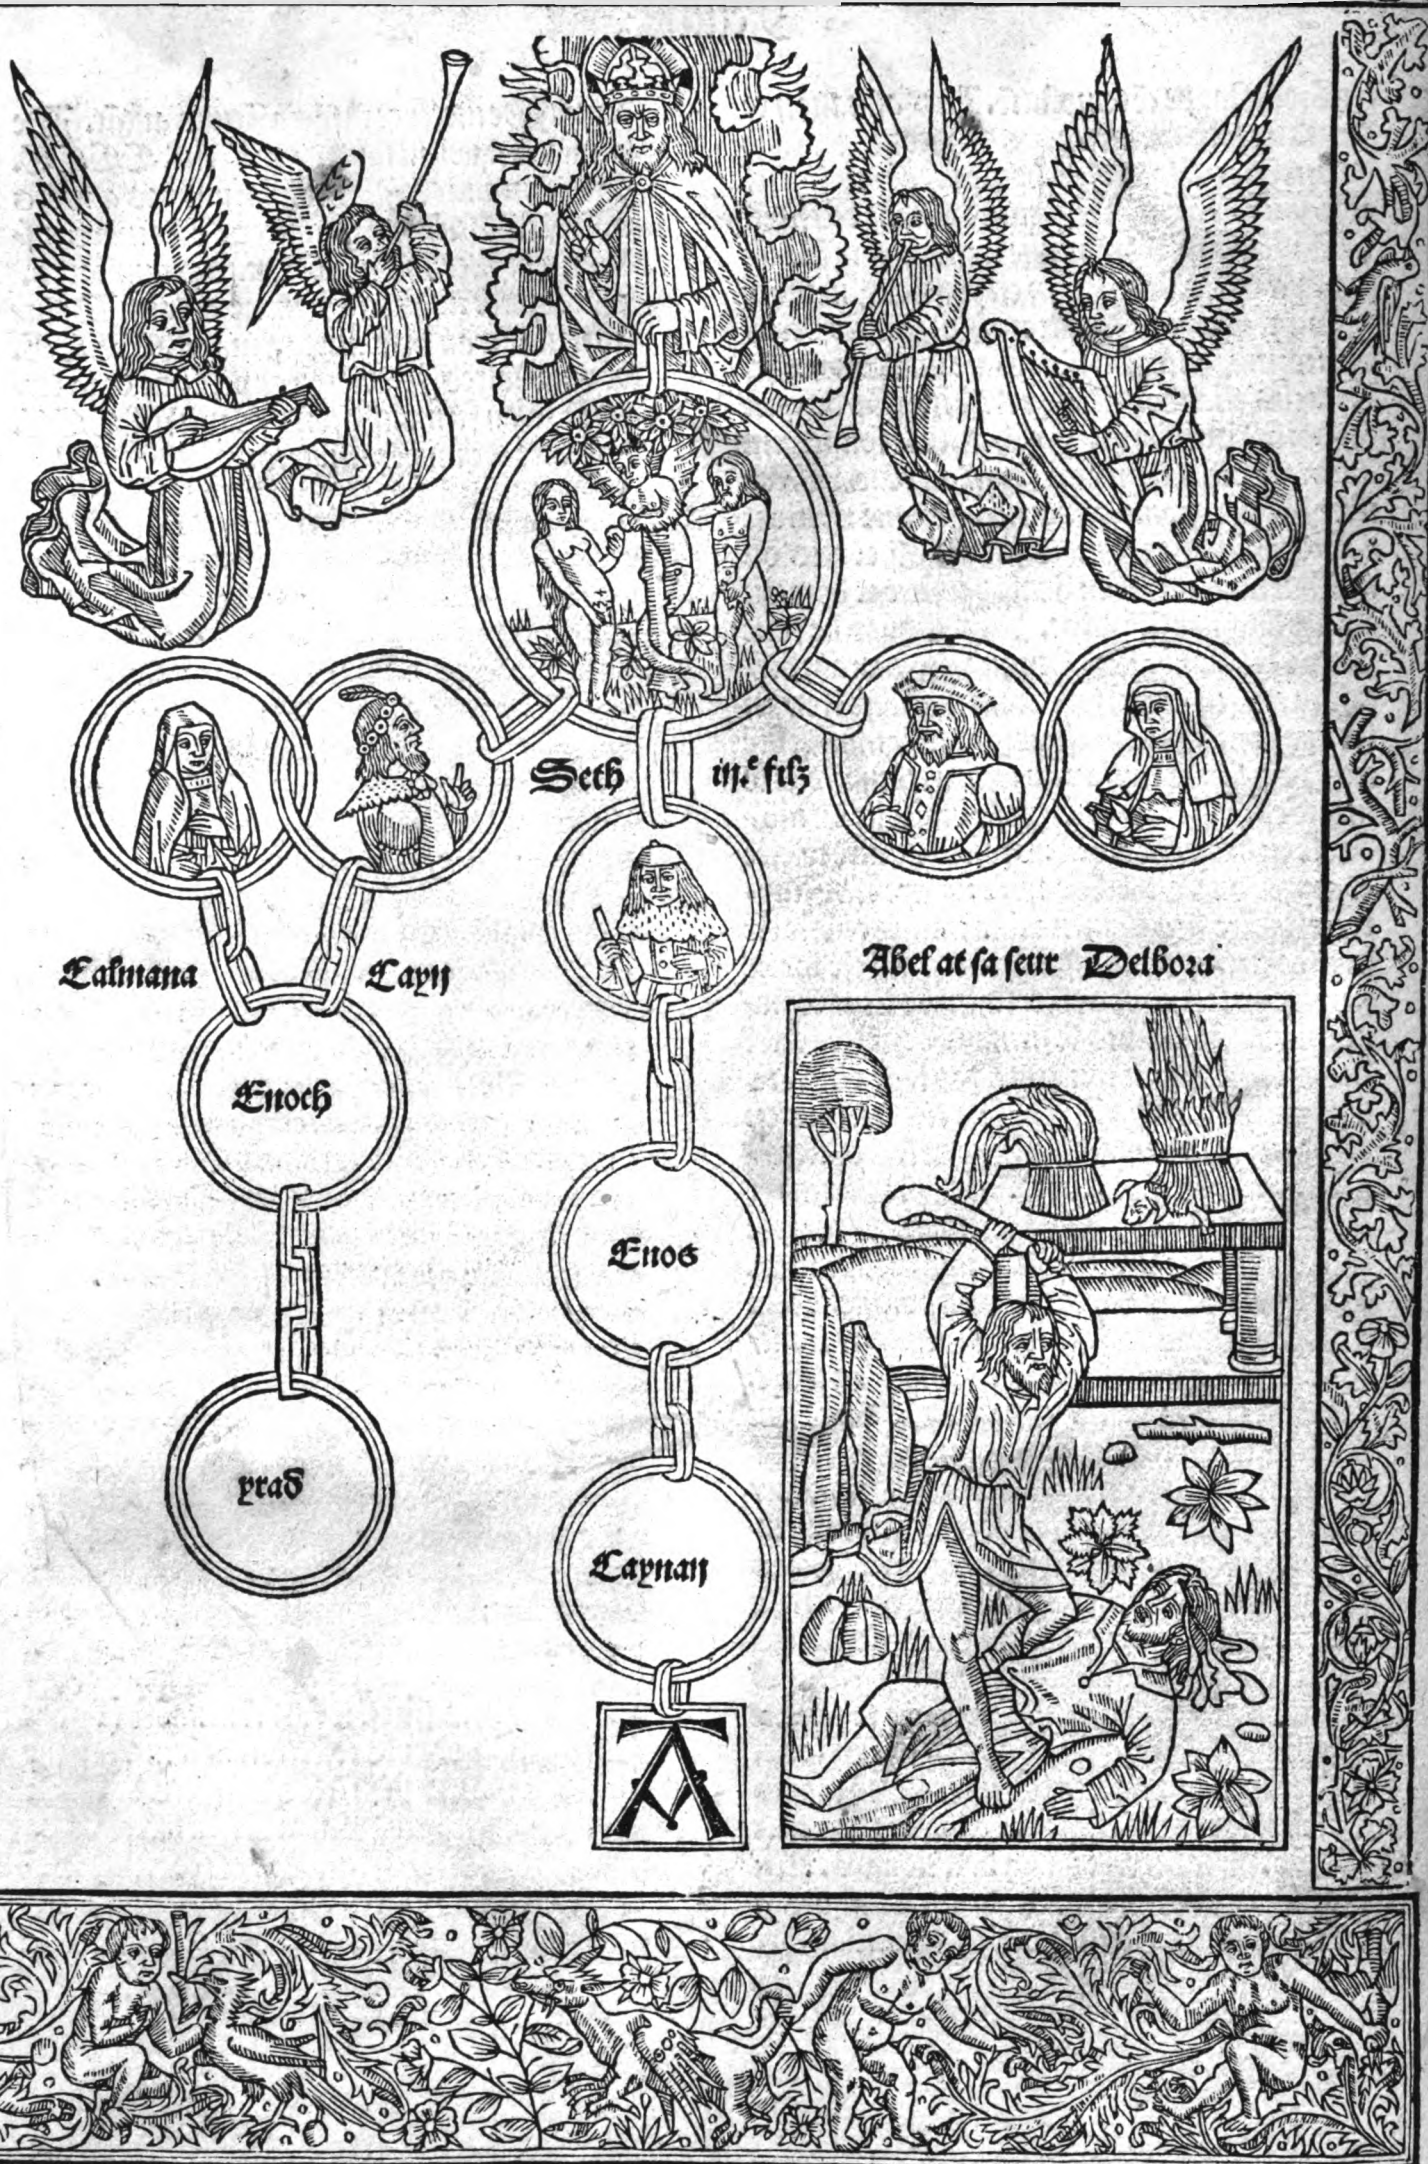 Seth iij.e filz
Calmana Cayn
Abel at sa seur Delbora
Enoch
Enos
yrad
Caynan
A